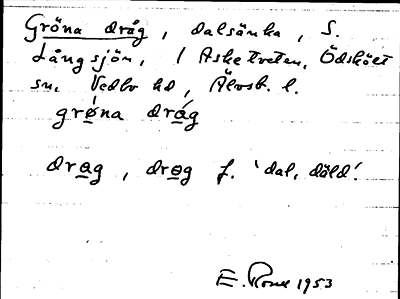 Gröna dråg, dalsänka, S.
Långsjön, i Asketveten, Ödskölt
sn. Vedbo hd, Älvsb. l.
grǿna drág
drag, drøg f. 'dal, däld'.
E. 1953